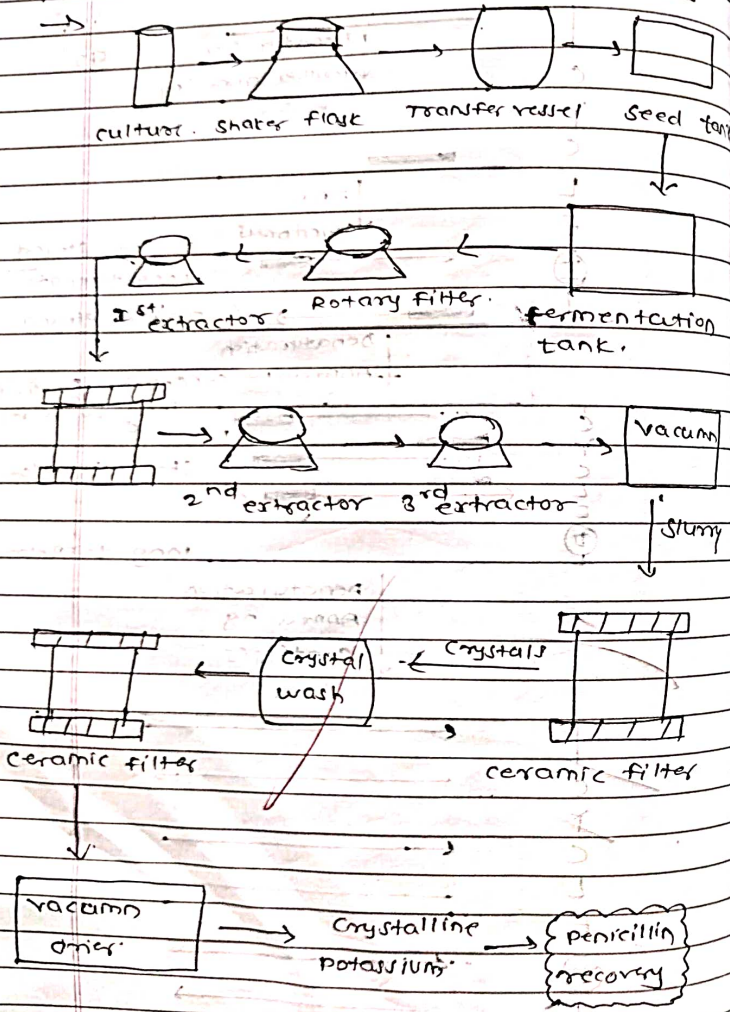 culture. shaker flask Transfer vessel seed tank
1st extractor. Rotary filter. fermentation
tank.
vacumn
2nd extractor 3rd extractor
slurry
crystals
crystal
wash
ceramic filter ceramic filter
vacumn
drier.
crystalline
potassium.
penicillin
recovery